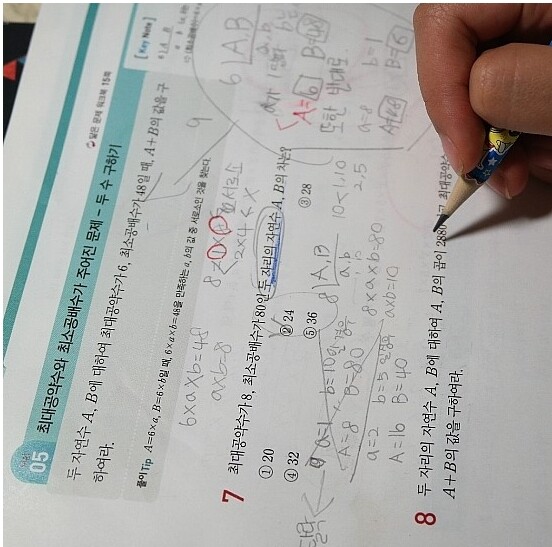 유형
05 최대공약수와 최소공배수가 주어진 문제 - 두 수 구하기
닮은 문제 워크북 15쪽
두 자연수 A, B에 대하여 최대공약수가 6, 최소공배수가 48일 때, A+B의 값을 구
하여라.
[ Key Note ]
풀이 Tip A=6×a, B=6×b일 때, 6×a×b=48을 만족하는 a, b의 값 중 서로소인 것을 찾는다.
6×a×b=48
a×b=8
8<1×8 서로소
2×4 < ×
6) A, B
a, b
A=6 B=48
또한 반대로
a=8 b=1
B=6
7 최대공약수가 8, 최소공배수가 80인 두 자리의 자연수 A, B의 차는?
① 20 ② 24 ③ 28
④ 32 ⑤ 36
8) A, B
a, b
8×a×b=80
a×b=10
10<1, 10
2, 5
a=1 b=10일 경우
A=8 B=80
a=2 b=5일 경우
A=16 B=40
탈락
8 두 자리의 자연수 A, B에 대하여 A, B의 곱이 2880이고 최대공약수
A+B의 값을 구하여라.